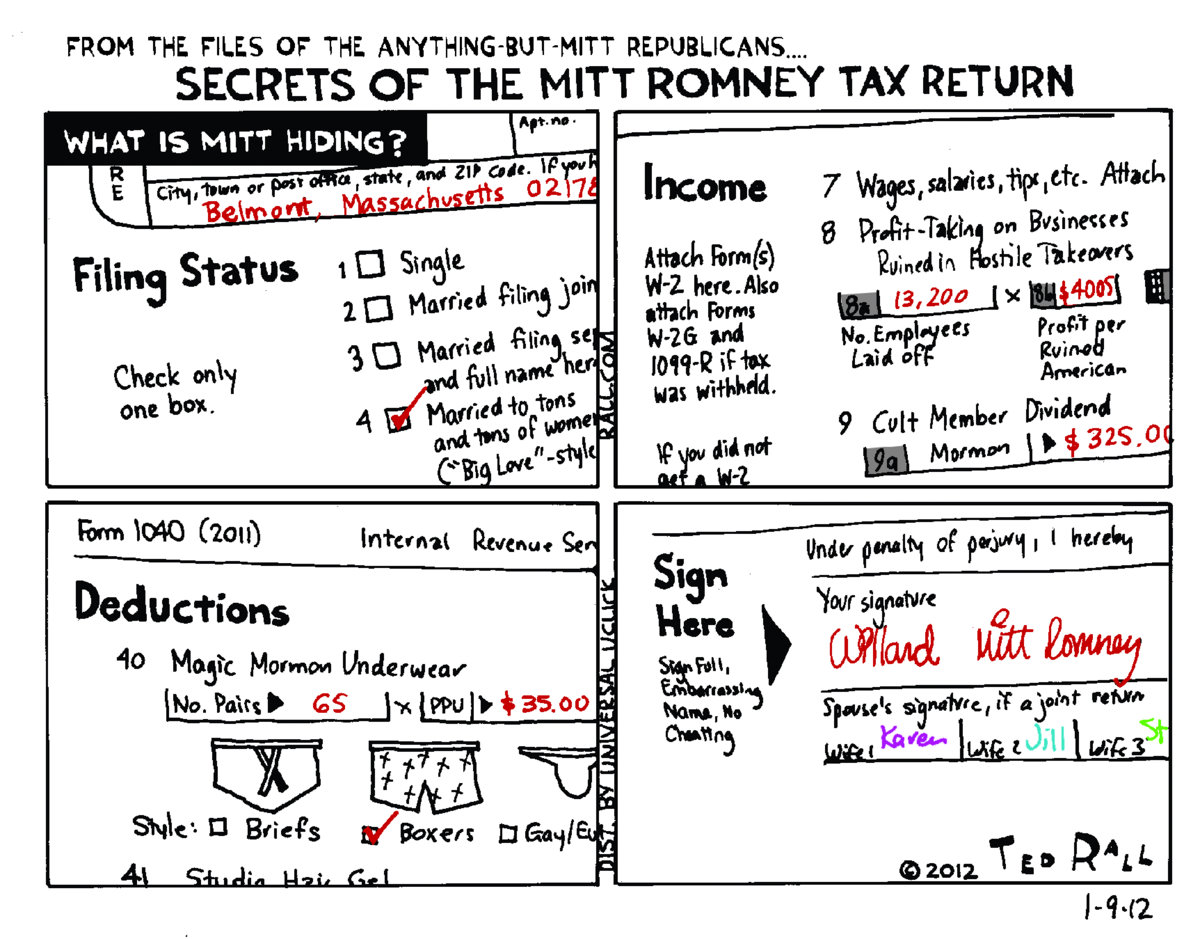 FROM THE FILES OF THE ANYTHING-BUT-MITT REPUBLICANS....
SECRETS OF THE MITT ROMNEY TAX RETURN
WHAT IS MITT HIDING?
Apt. no.
RE
City, town or post office, state, and ZIP code. If you h
Belmont, Massachusetts 02178
Filing Status
Check only
one box.
1 Single
2 Married filing join
3 Married filing se
and full name her
4 Married to tons
and tons of women
("Big Love"-style
RALL.COM
Income
Attach Form(s)
W-2 here. Also
attach Forms
W-2G and
1099-R if tax
was withheld.
If you did not
get a W-2
7 Wages, salaries, tips, etc. Attach
8 Profit-Taking on Businesses
Ruined in Hostile Takeovers
8a 13,200 x 8b $4005
No. Employees
Laid off
Profit per
Ruined
American
9 Cult Member Dividend
9a Mormon $325.00
Form 1040 (2011)
Internal Revenue Ser
Deductions
40 Magic Mormon Underwear
No. Pairs 65 x PPU $35.00
Style: Briefs Boxers Gay/Eu
41 Studio Hair Gel
DIST. BY UNIVERSAL UCLICK
Sign
Here
Sign Full,
Embarrassing
Name, No
Cheating
Under penalty of perjury, I hereby
Your signature
Willard Mitt Romney
Spouse's signature, if a joint return
Wife 1 Karen Wife 2 Jill Wife 3 St
© 2012 TED RALL
1-9-12